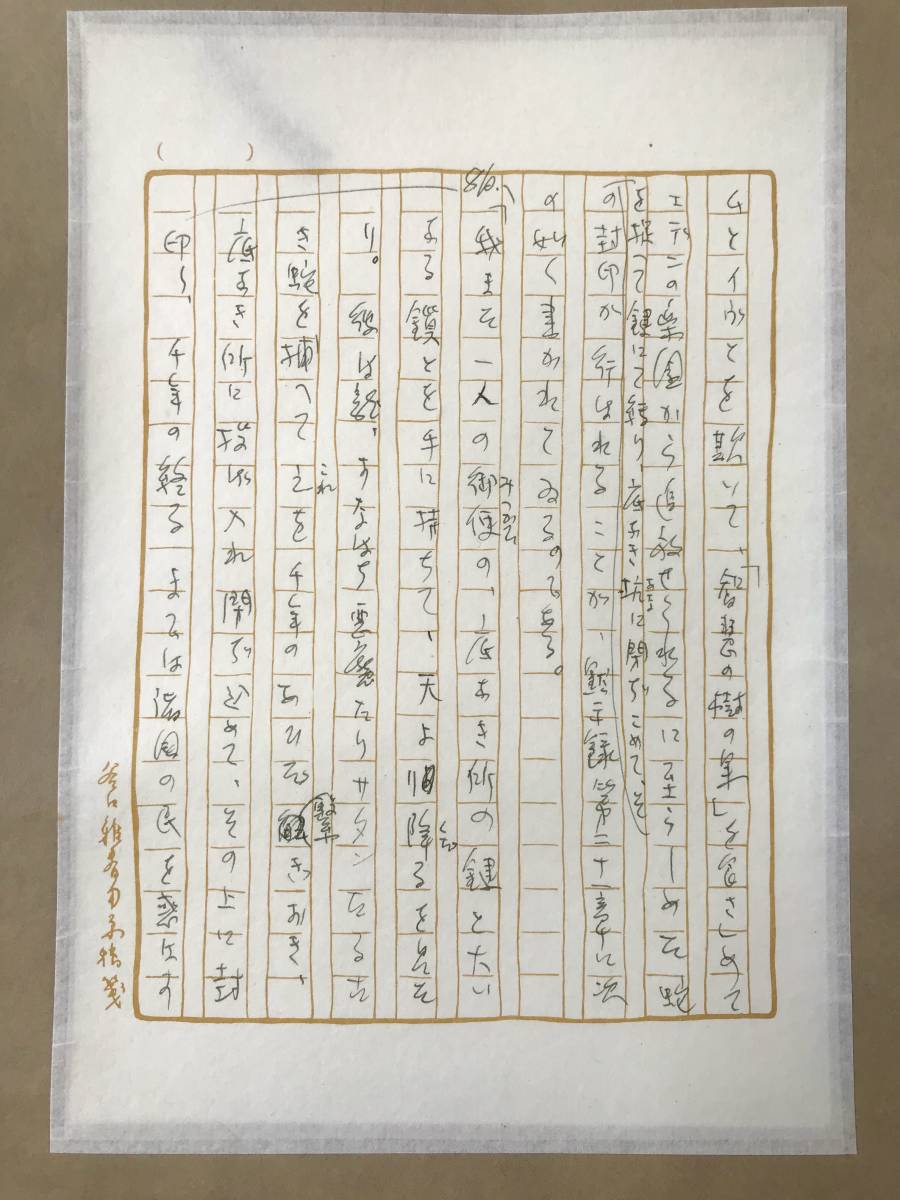 ムとイヴとを欺いて、「智慧の樹の果」を食さしめて
エデンの楽園から追放せられるに至らしめた蛇
を捉へて鍵にて縛り、底なき坑に閉ぢこめて、そ
あな
の封印が行はれることが、黙示録第二十章に次
の如く書かれてゐるのである。
「我また一人の御使の、底なき所の鍵と大い
みつかひ
なる鎖とを手に持ちて、天より降るを見た
くだ
り。彼は龍、すなはち悪魔たりサタンたる古
き蛇を捕へて之を千年のあひだ繋ぎおき、
これ
底なき所に投げ入れ閉ぢ込めて、その上に封
印し、千年の終るまでは諸国の民を惑はす
8ポ
(　　)
谷口雅春用原稿箋